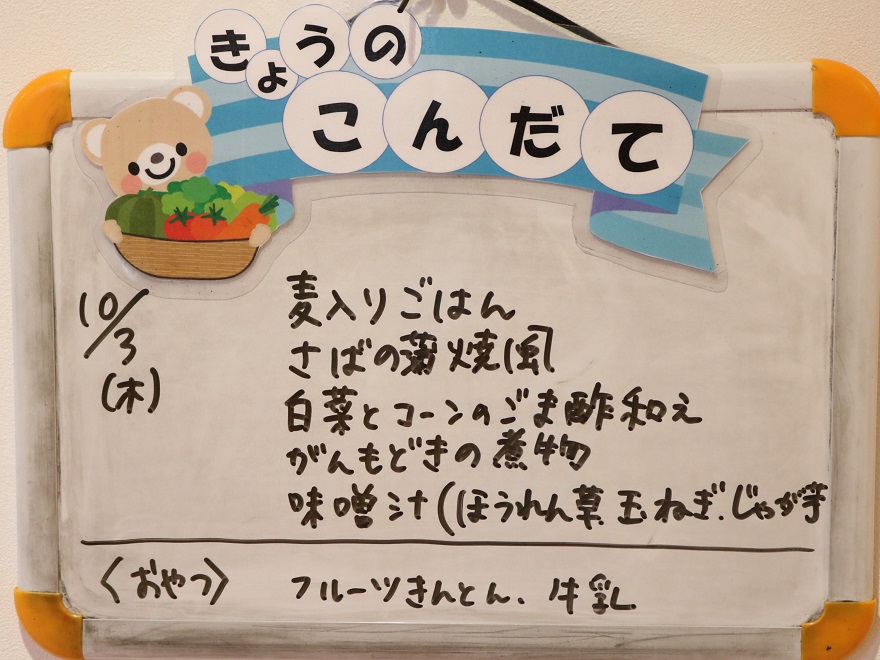 きょうの
こんだて
10/3
(木)
麦入りごはん
さばの蒲焼風
白菜とコーンのごま酢和え
がんもどきの煮物
味噌汁(ほうれん草 玉ねぎ.じゃが芋
〈おやつ〉 フルーツきんとん、牛乳